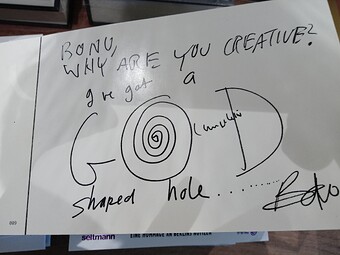 BONO,
WHY ARE YOU CREATIVE?
I've got a
GOD
shaped hole........ Bono
seltmann
EINE HOMMAGE AN BERLINS